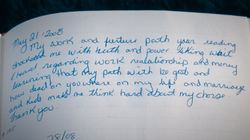 May 21/2008
My work and future path your reading
me with truth and power
I have regarding work relationship and money
learning that my path with be good and
how dead on you where on my life and marriage
and kids make me think hard about my chose
Thank you
/08